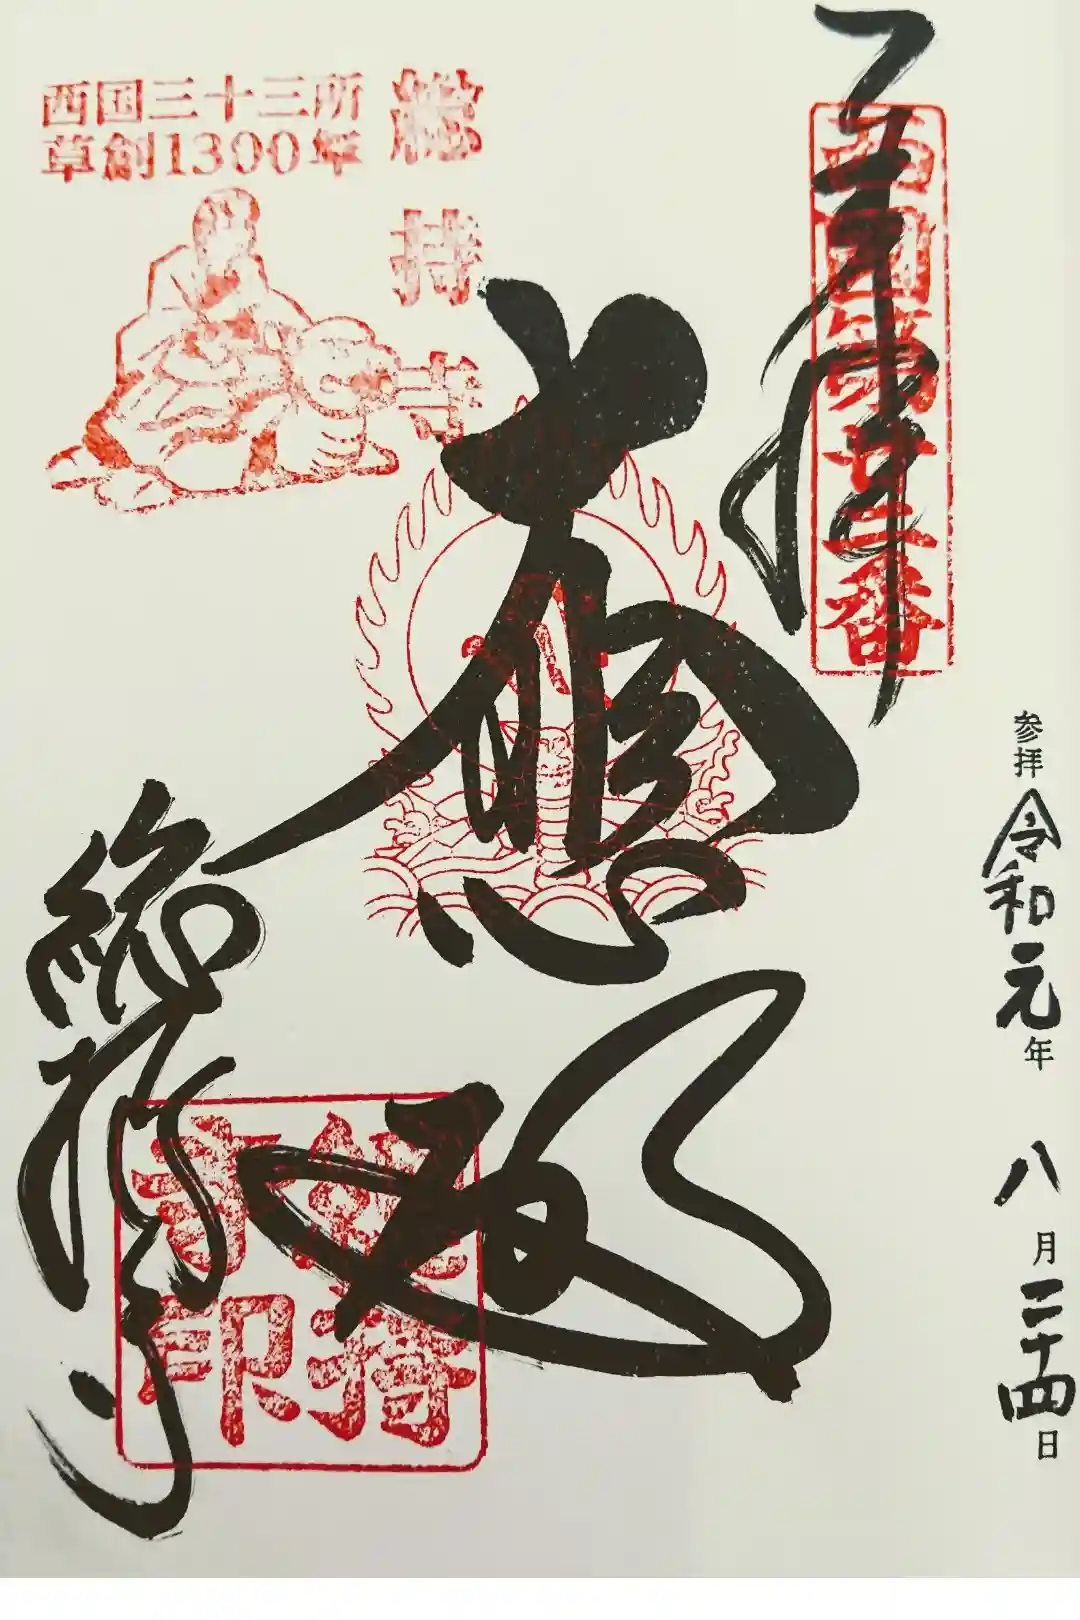 奉拝
西国第廿二番
参拝 令和元年 八月二十四日
大悲殿
総持寺
西国三十三所
草創1300年
總持寺
總持
寺印